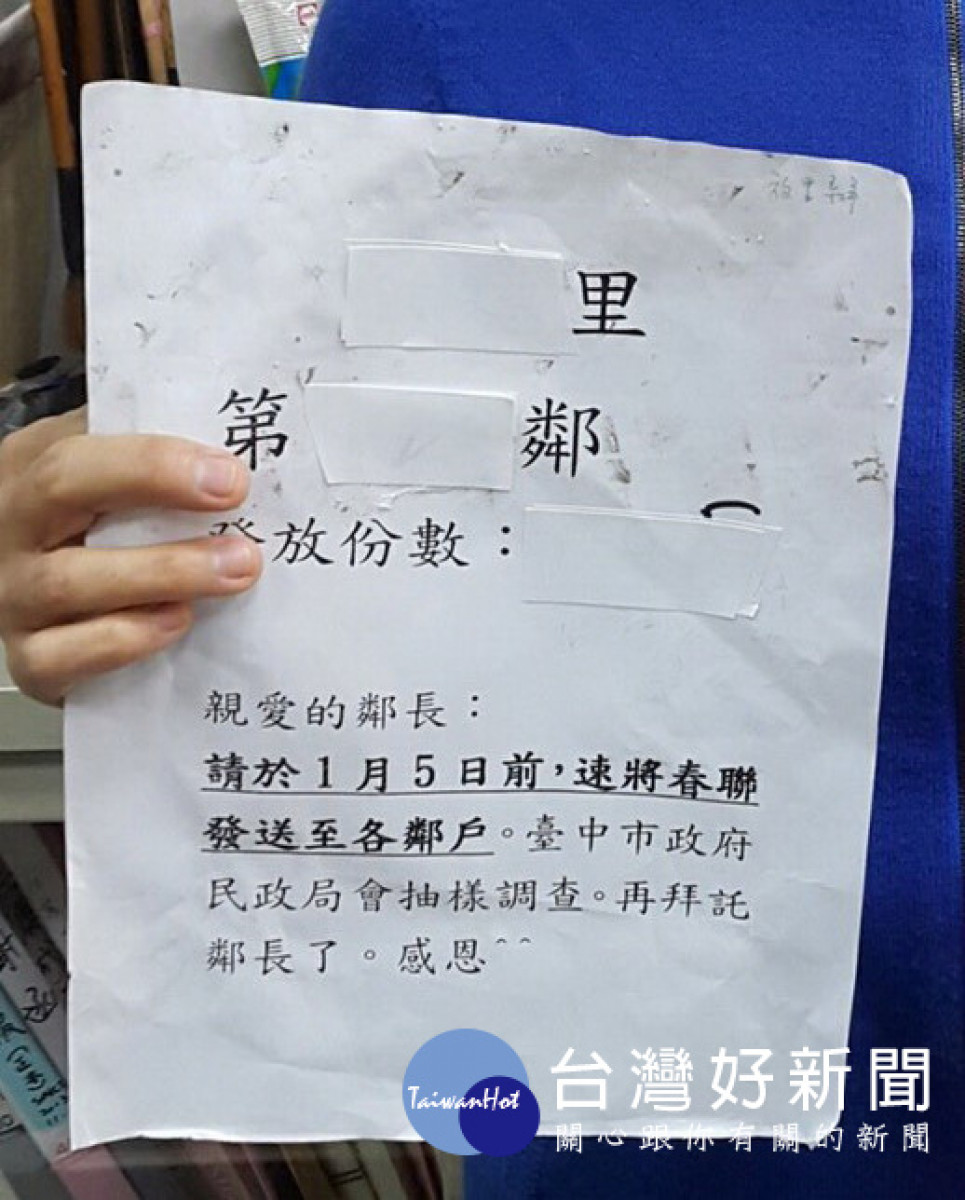 里
第 鄰
發放份數：
親愛的鄰長：
請於1月5日前，速將春聯
發送至各鄰戶。臺中市政府
民政局會抽樣調查。再拜託
鄰長了。感恩^^
TaiwanHot
台灣好新聞
關心跟你有關的新聞